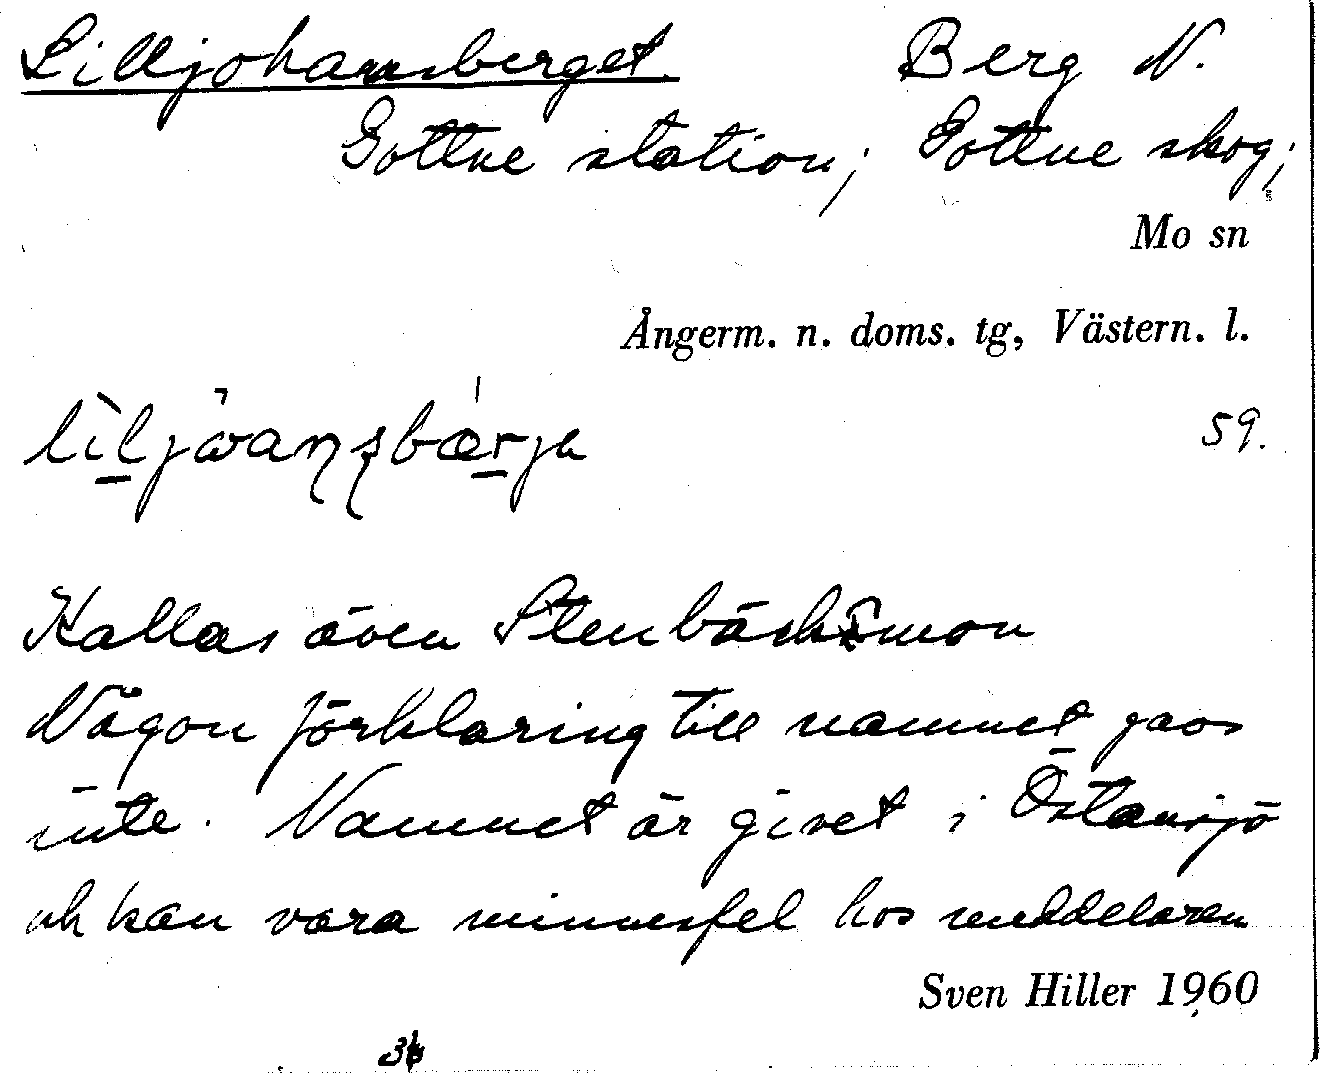 Lilljohansberget. Berg N.
Gottne station; Gottne skog;
Mo sn
Ångerm. n. doms. tg, Västern. l.
59.
Kallas även Stenbäcksmon
Någon förklaring till namnet gavs
inte. Namnet är givet i Östansjö
och kan vara minnesfel hos meddelaren
Sven Hiller 1960